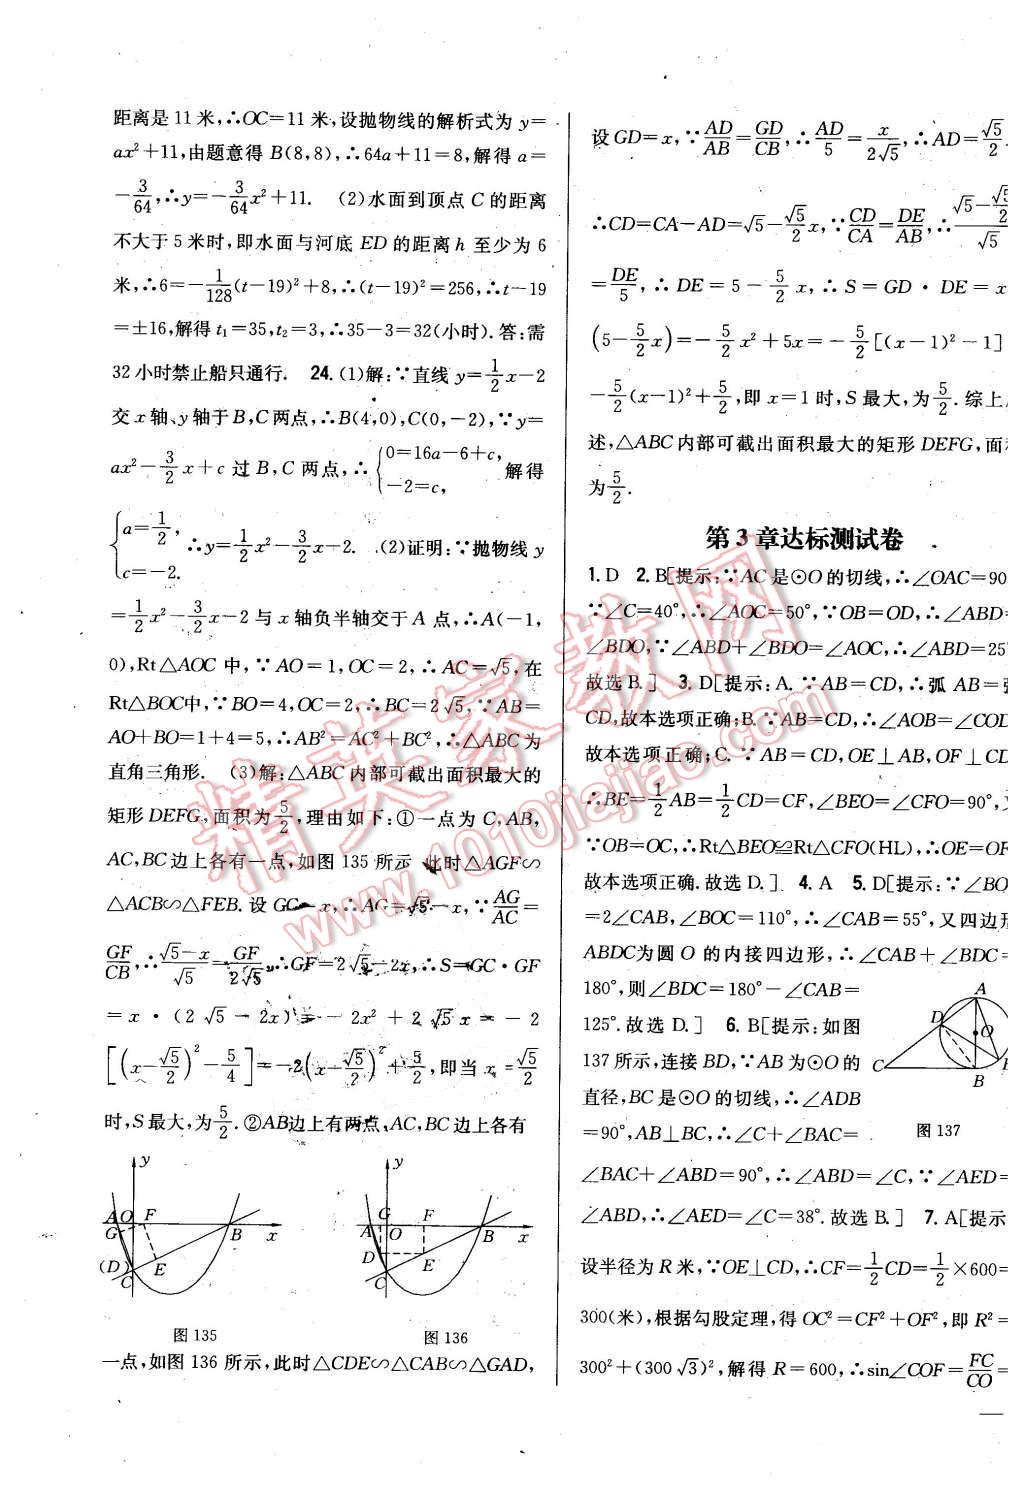 距离是11米,∴OC=11米,设抛物线的解析式为 y=
ax²+11,由题意得 B(8,8),∴64a+11=8,解得 a=
-3/64,∴y=-3/64x²+11. (2)水面到顶点 C 的距离
不大于5米时,即水面与河底 ED 的距离 h 至少为 6
米,∴6=-1/128(t-19)²+8,∴(t-19)²=256,∴t-19
=±16,解得 t₁=35,t₂=3,∴35-3=32(小时).答:需
32小时禁止船只通行. 24.(1)解:∵直线 y=1/2x-2
交 x 轴、y 轴于 B,C 两点,∴B(4,0),C(0,-2),∵y=
ax²-3/2x+c 过 B,C 两点,∴{0=16a-6+c, -2=c, 解得
{a=1/2, c=-2. ∴y=1/2x²-3/2x-2. (2)证明:∵抛物线 y
=1/2x²-3/2x-2 与 x 轴负半轴交于 A 点,∴A(-1,
0),Rt△AOC 中,∵AO=1,OC=2,∴AC=√5,在
Rt△BOC中,∵BO=4,OC=2,∴BC=2√5,∵AB=
AO+BO=1+4=5,∴AB²=AC²+BC²,∴△ABC 为
直角三角形. (3)解:△ABC 内部可截出面积最大的
矩形 DEFG,面积为5/2,理由如下:①一点为 C,AB,
AC,BC边上各有一点,如图135所示 此时△AGF∽
△ACB∽△FEB.设 GC=x,∴AG=√5-x,∵AG/AC=
GF/CB,∴(√5-x)/√5=GF/2√5,∴GF=2√5-2x,∴S=GC·GF
=x·(2√5-2x)=-2x²+2√5x=-2
[(x-√5/2)²-5/4]=-2(x-√5/2)²+5/2,即当 x=√5/2
时,S 最大,为5/2.②AB边上有两点,AC,BC边上各有
y
A O F
G
B x
(D)
E
C
图135
y
G F
A O B x
D
E
C
图136
一点,如图136所示,此时△CDE∽△CAB∽△GAD,
设 GD=x,∵AD/AB=GD/CB,∴AD/5=x/2√5,∴AD=√5/2
∴CD=CA-AD=√5-√5/2x,∵CD/CA=DE/AB,∴(√5-√5/2)/√5
=DE/5,∴DE=5-5/2x,∴S=GD·DE=x
(5-5/2x)=-5/2x²+5x=-5/2[(x-1)²-1]
-5/2(x-1)²+5/2,即 x=1时,S 最大,为5/2.综上
述,△ABC 内部可截出面积最大的矩形 DEFG,面
为5/2.
第3章达标测试卷
1.D 2.B[提示:∵AC 是⊙O 的切线,∴∠OAC=90
∵∠C=40°,∴∠AOC=50°,∵OB=OD,∴∠ABD=
∠BDO,∵∠ABD+∠BDO=∠AOC,∴∠ABD=25°
故选B.] 3.D[提示:A.∵AB=CD,∴弧 AB=弧
CD,故本选项正确;B.∵AB=CD,∴∠AOB=∠COD
故本选项正确;C.∵AB=CD,OE⊥AB,OF⊥CD
∴BE=1/2AB=1/2CD=CF,∠BEO=∠CFO=90°,又
∵OB=OC,∴Rt△BEO≌Rt△CFO(HL),∴OE=OF
故本选项正确.故选D.] 4.A 5.D[提示:∵∠BO
=2∠CAB,∠BOC=110°,∴∠CAB=55°,又四边形
ABDC为圆 O 的内接四边形,∴∠CAB+∠BDC=
180°,则∠BDC=180°-∠CAB=
125°.故选D.] 6.B[提示:如图
137所示,连接 BD,∵AB 为⊙O 的
直径,BC 是⊙O 的切线,∴∠ADB
=90°,AB⊥BC,∴∠C+∠BAC=
A
D
O
C
B
图137
∠BAC+∠ABD=90°,∴∠ABD=∠C,∵∠AED=
∠ABD,∴∠AED=∠C=38°.故选B.] 7.A[提示
设半径为 R 米,∵OE⊥CD,∴CF=1/2CD=1/2×600=
300(米),根据勾股定理,得 OC²=CF²+OF²,即 R²=
300²+(300√3)²,解得 R=600,∴sin∠COF=FC/CO=
精英家教网
www.1010jiajiao.com